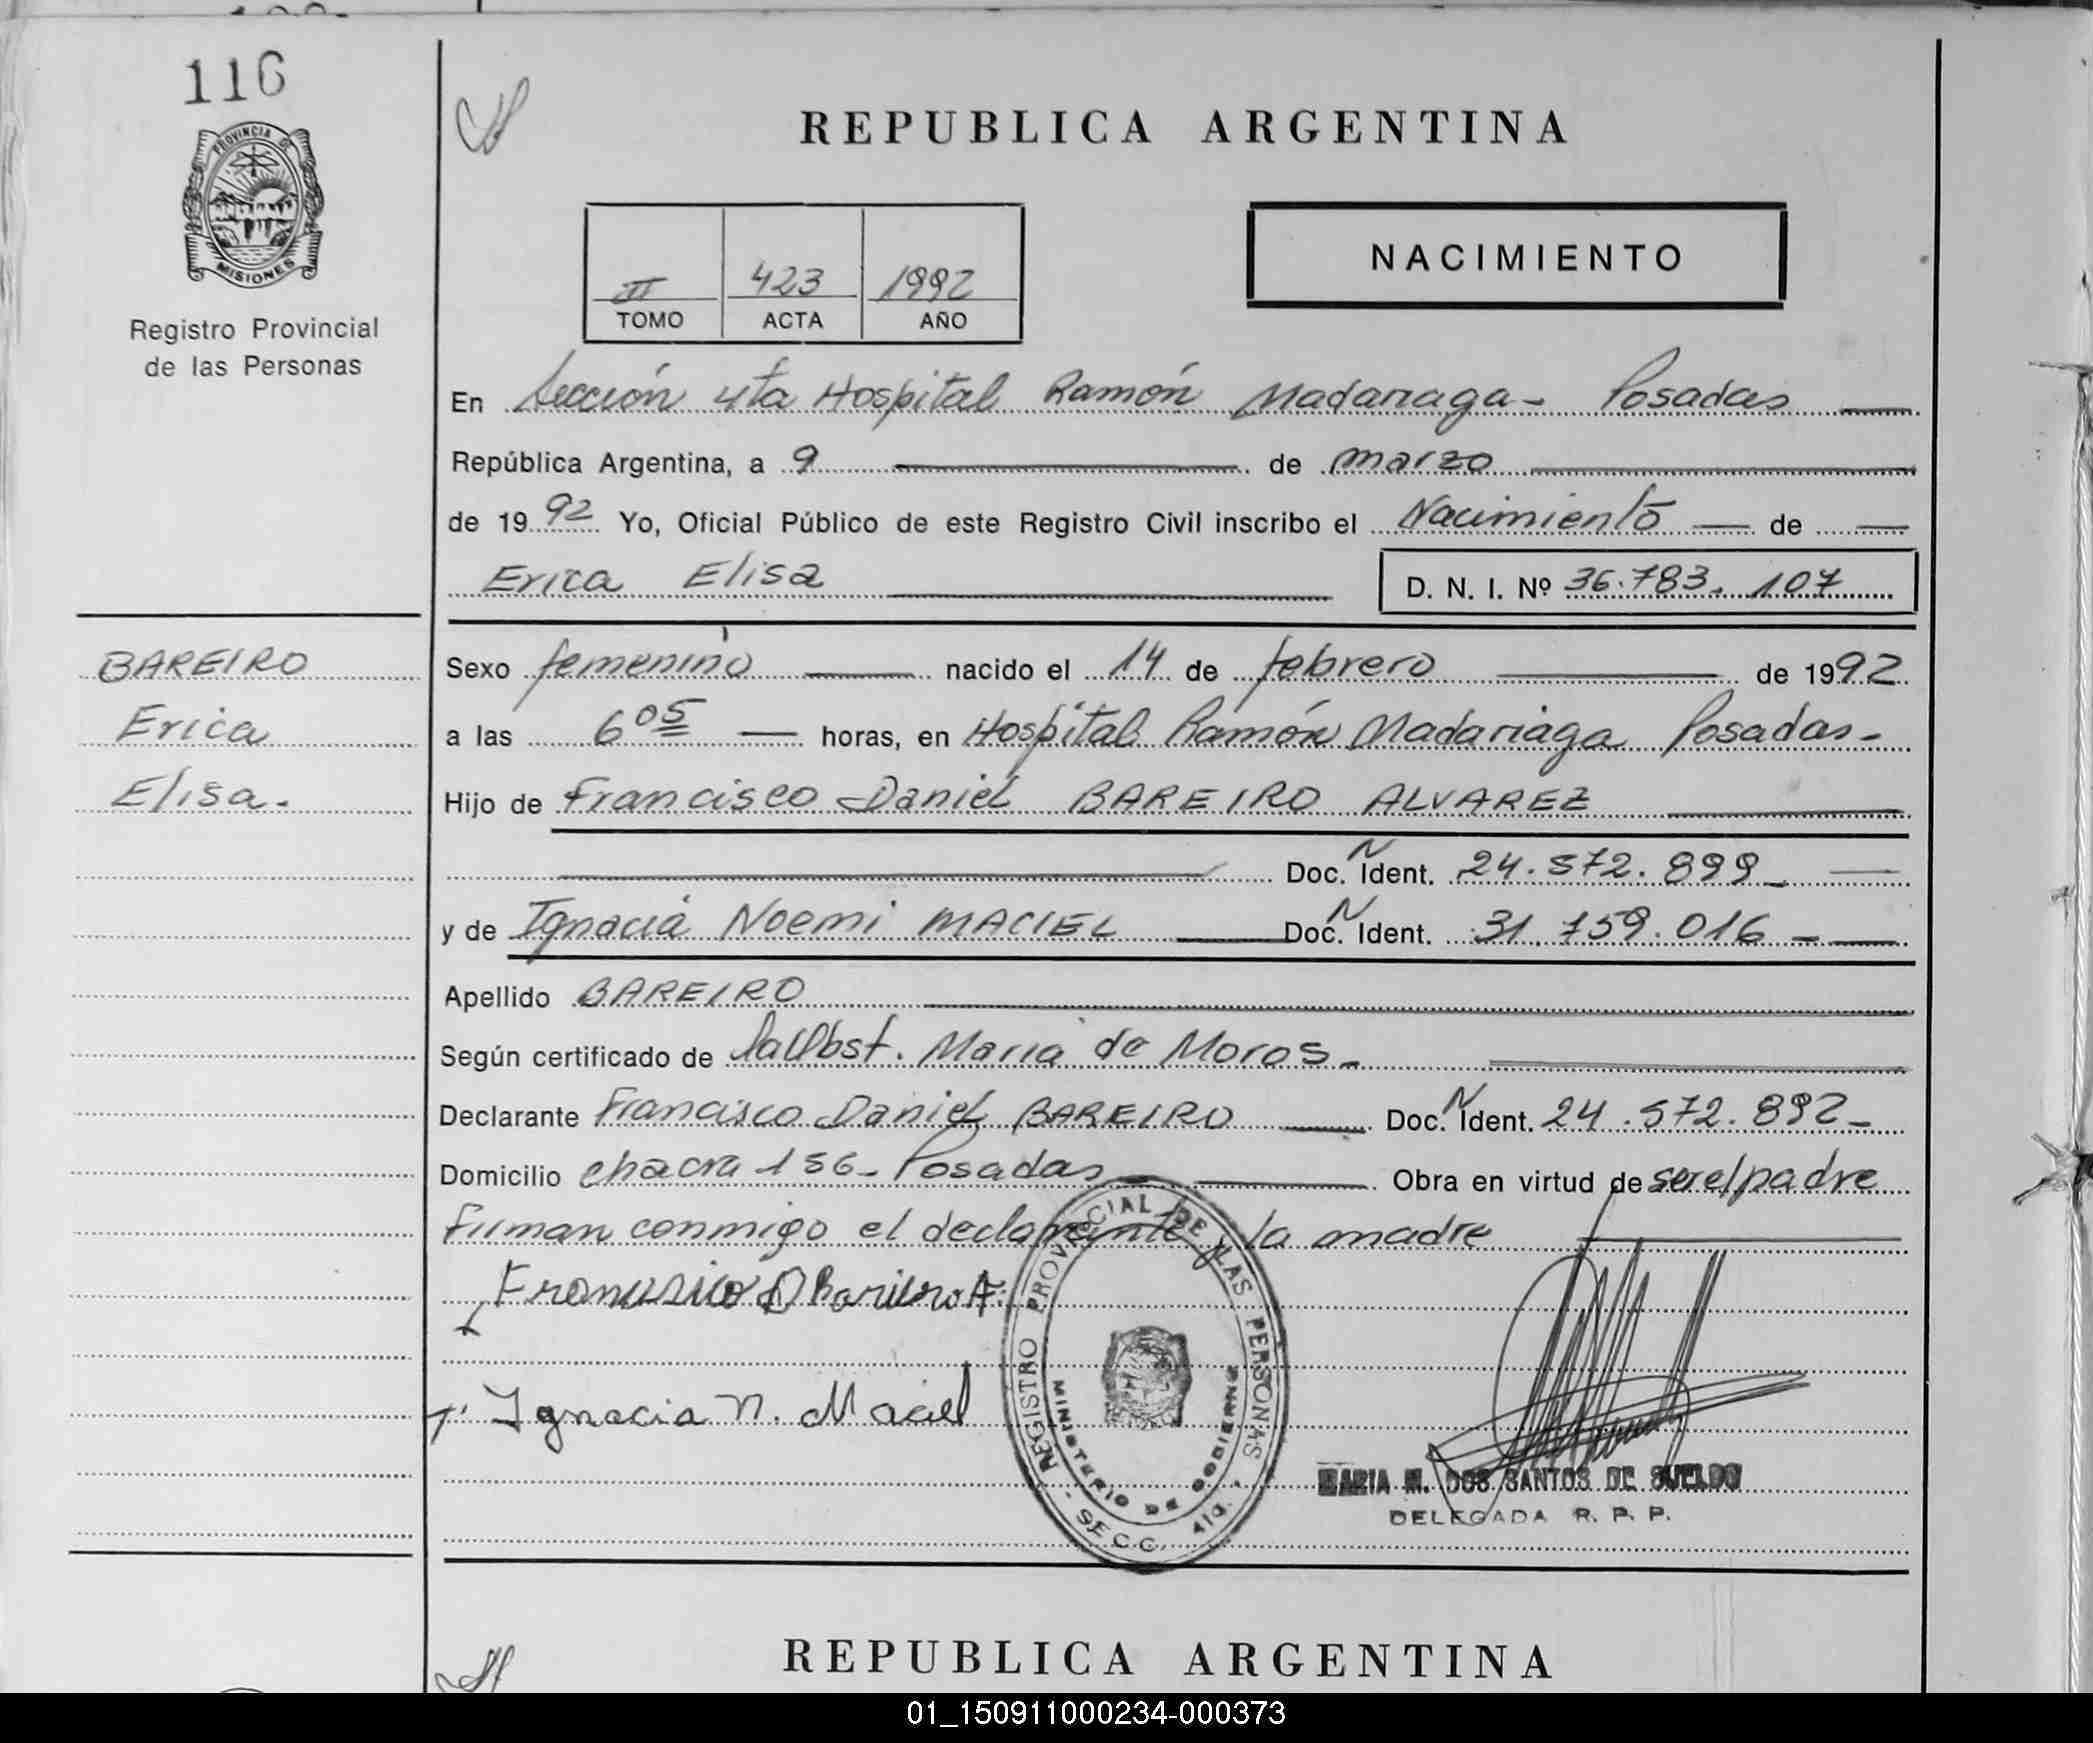 116
PROVINCIA DE
MISIONES
Registro Provincial
de las Personas
REPUBLICA ARGENTINA
III 423 1992
TOMO ACTA AÑO
NACIMIENTO
En Sección 4ta Hospital Ramón Madariaga - Posadas
República Argentina, a 9 de marzo
de 1992 Yo, Oficial Público de este Registro Civil inscribo el Nacimiento de
Erica Elisa D. N. I. Nº 36.783.107
BAREIRO
Erica
Elisa.
Sexo femenino nacido el 14 de febrero de 1992
a las 6 05 horas, en Hospital Ramón Madariaga Posadas-
Hijo de Francisco Daniel BAREIRO ALVAREZ
Doc. N Ident. 24.572.899-
y de Ignacia Noemi MACIEL Doc. N Ident. 31.759.016-
Apellido BAREIRO
Según certificado de la Obst. Maria de Moros-
Declarante Francisco Daniel BAREIRO Doc. N Ident. 24.572.892-
Domicilio chacra 156- Posadas Obra en virtud de ser el padre
Firman conmigo el declarante y la madre
Ignacia N. Maciel
REGISTRO PROVINCIAL DE LAS PERSONAS
MINISTERIO DE GOBIERNO
SECC. 4ta.
MARIA M. DOS SANTOS DE SUELDO
DELEGADA R. P. P.
REPUBLICA ARGENTINA
01_150911000234-000373